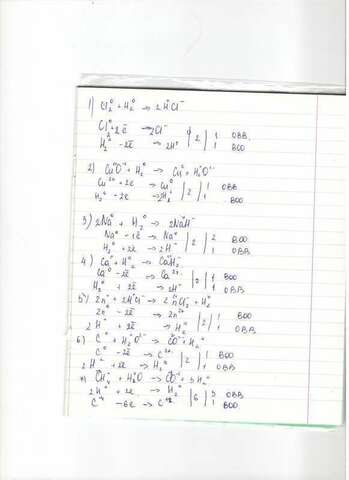 1) Cl₂⁰ + H₂⁰ → 2H⁺Cl⁻
Cl₂⁰ + 2ē → 2Cl⁻ | 2 | 1 ОВВ
H₂⁰ - 2ē → 2H⁺ | 1 ВОО
2) Cu⁺²O⁻² + H₂⁰ → Cu⁰ + H₂⁺O⁻²
Cu²⁺ + 2ē → Cu⁰ | 2 | 1 ОВВ
H₂⁰ - 2ē → 2H⁺ | 1 ВОО
3) 2Na⁰ + H₂⁰ → 2NaH⁻
Na⁰ - 1ē → Na⁺ | 2 | 2 ВОО
H₂⁰ + 2ē → 2H⁻ | 1 ОВВ
4) Ca⁰ + H₂⁰ → CaH₂
Ca⁰ - 2ē → Ca²⁺ | 2 | 1 ВОО
H₂⁰ + 2ē → 2H⁻ | 1 ОВВ
5) Zn⁰ + 2HCl → ZnCl₂ + H₂⁰
Zn⁰ - 2ē → Zn²⁺ | 2 | 1 ВОО
2H⁺ + 2ē → H₂⁰ | 1 ОВВ
6) C⁰ + H₂⁺O⁻² → CO + H₂⁰
C⁰ - 2ē → C²⁺ | 2 | 1 ВОО
2H⁺ + 2ē → H₂⁰ | 1 ОВВ
CH₄ + H₂O → CO + 3H₂⁰
2H⁺ + 2ē → H₂⁰ | 6 | 3 ОВВ
C⁻⁴ - 6ē → C⁺² | 1 ВОО